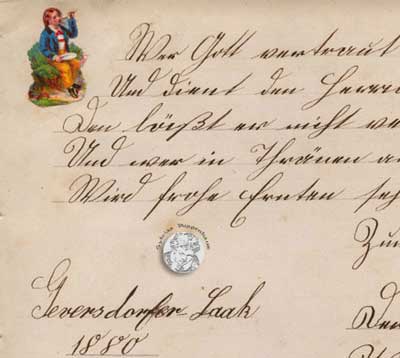 Wer Gott vertraut
Und dient den Herrn
Den läßt er nicht
Und wer in Thränen
Wird frohe Ernten
Geversdorfer Laak
1880